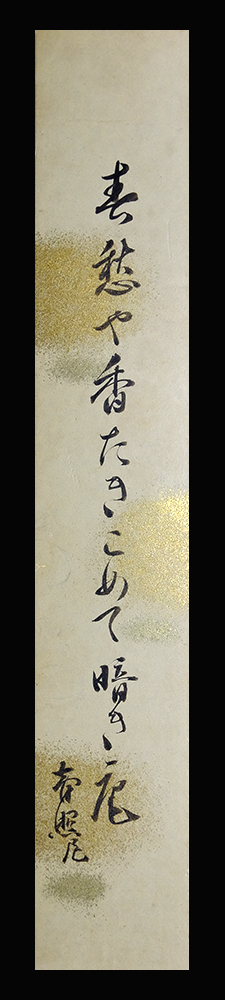 春愁や香たきこめて暗き庵
照尼